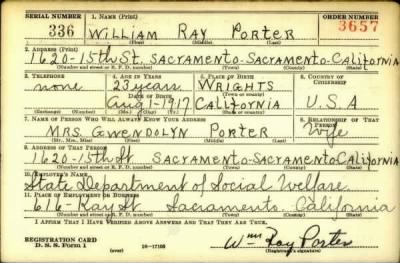 SERIAL NUMBER 1. NAME (Print) ORDER NUMBER
336 WILLIAM RAY PORTER 3657
(First) (Middle) (Last)
2. ADDRESS (Print)
1620-15th St. SACRAMENTO-SACRAMENTO-CALIFORNIA
(Number and street or R. F. D. number) (Town) (County) (State)
3. TELEPHONE 4. AGE IN YEARS 5. PLACE OF BIRTH 6. COUNTRY OF CITIZENSHIP
none 23 years WRIGHTS
DATE OF BIRTH (Town or county)
Aug 1-1917 CALIFORNIA U.S.A
(Exchange) (Number) (Mo.) (Day) (Yr.) (State or country)
7. NAME OF PERSON WHO WILL ALWAYS KNOW YOUR ADDRESS 8. RELATIONSHIP OF THAT PERSON
MRS. GWENDOLYN PORTER Wife
(Mr., Mrs., Miss) (First) (Middle) (Last)
9. ADDRESS OF THAT PERSON
1620-15th St SACRAMENTO-SACRAMENTO-CALIFORNIA
(Number and street or R. F. D. number) (Town) (County) (State)
10. EMPLOYER'S NAME
State Department of Social Welfare
11. PLACE OF EMPLOYMENT OR BUSINESS
616- Sacramento California
(Number and street or R. F. D. number) (Town) (County) (State)
I AFFIRM THAT I HAVE VERIFIED ABOVE ANSWERS AND THAT THEY ARE TRUE.
REGISTRATION CARD
D. S. S. Form 1 (over) 16-17105 Wm Ray Porter
(Registrant's signature)